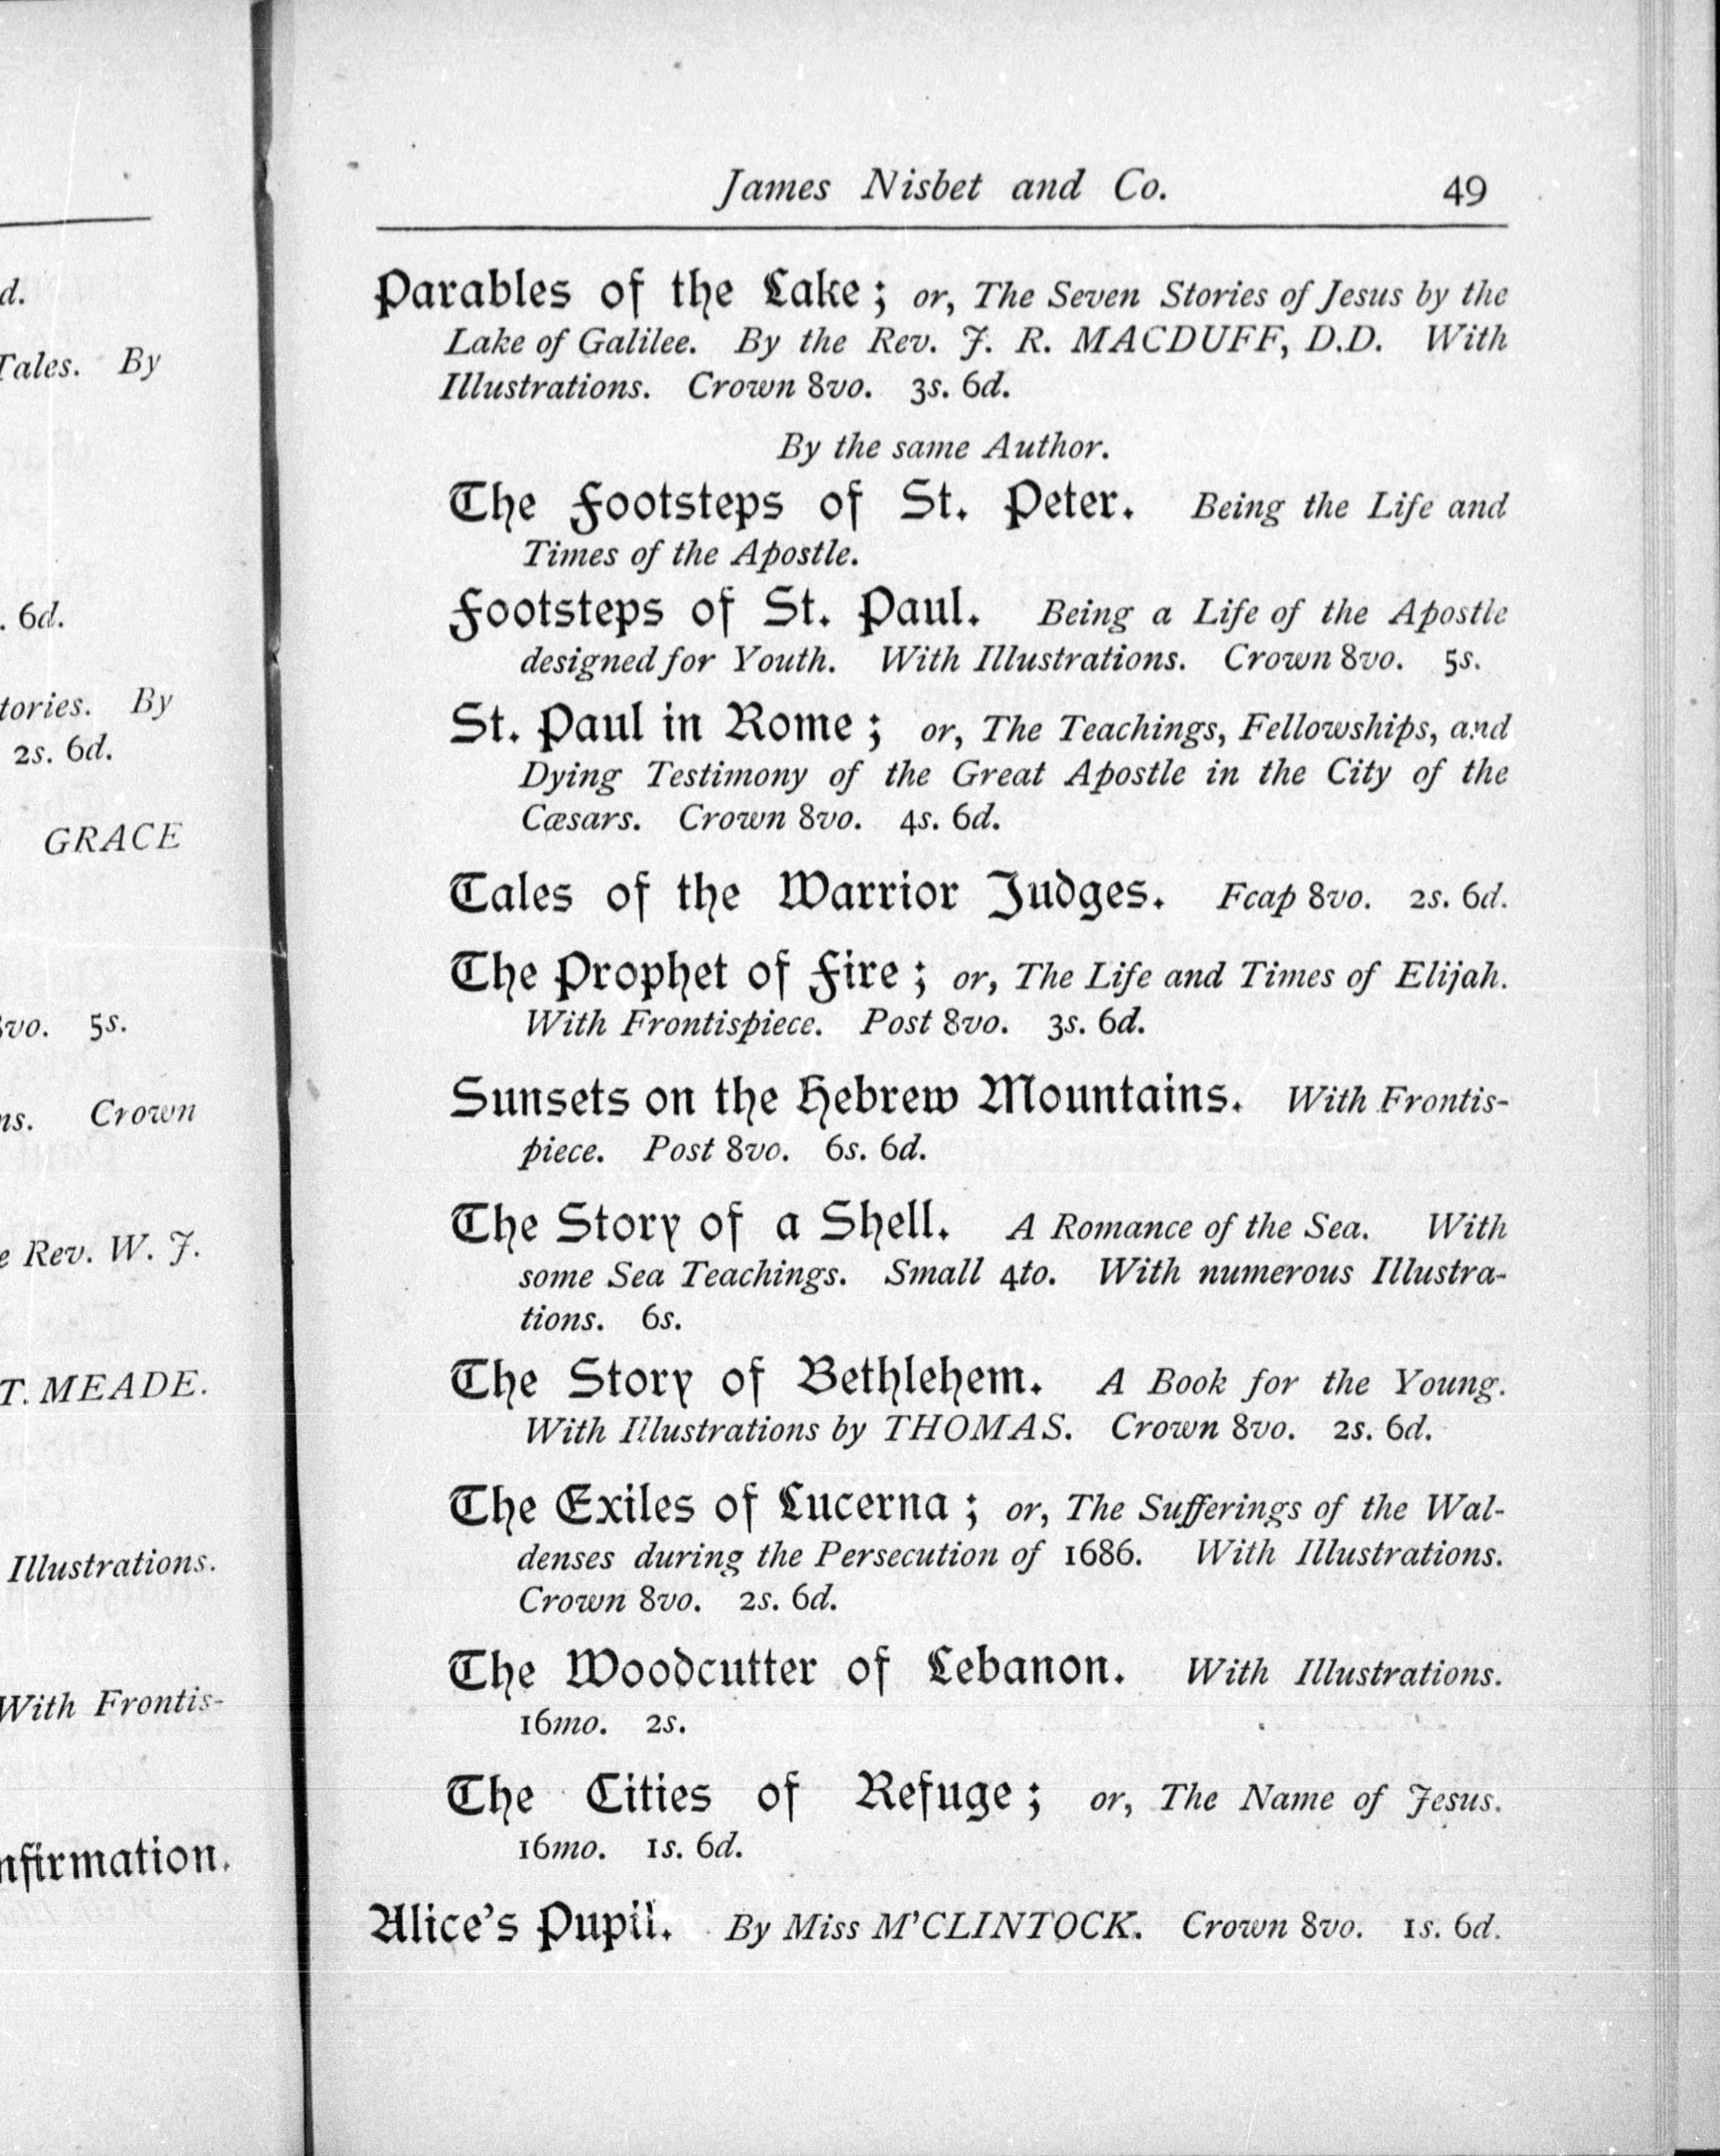 d.
Tales. By
. 6d.
tories. By
2s. 6d.
GRACE
8vo. 5s.
ns. Crown
e Rev. W. J.
T. MEADE.
Illustrations.
With Frontis-
nfirmation.
James Nisbet and Co. 49
Parables of the Lake; or, The Seven Stories of Jesus by the
Lake of Galilee. By the Rev. J. R. MACDUFF, D.D. With
Illustrations. Crown 8vo. 3s. 6d.
By the same Author.
The Footsteps of St. Peter. Being the Life and
Times of the Apostle.
Footsteps of St. Paul. Being a Life of the Apostle
designed for Youth. With Illustrations. Crown 8vo. 5s.
St. Paul in Rome; or, The Teachings, Fellowships, and
Dying Testimony of the Great Apostle in the City of the
Cæsars. Crown 8vo. 4s. 6d.
Tales of the Warrior Judges. Fcap 8vo. 2s. 6d.
The Prophet of Fire; or, The Life and Times of Elijah.
With Frontispiece. Post 8vo. 3s. 6d.
Sunsets on the Hebrew Mountains. With Frontis-
piece. Post 8vo. 6s. 6d.
The Story of a Shell. A Romance of the Sea. With
some Sea Teachings. Small 4to. With numerous Illustra-
tions. 6s.
The Story of Bethlehem. A Book for the Young.
With Illustrations by THOMAS. Crown 8vo. 2s. 6d.
The Exiles of Lucerna; or, The Sufferings of the Wal-
denses during the Persecution of 1686. With Illustrations.
Crown 8vo. 2s. 6d.
The Woodcutter of Lebanon. With Illustrations.
16mo. 2s.
The Cities of Refuge; or, The Name of Jesus.
16mo. 1s. 6d.
Alice's Pupil. By Miss M'CLINTOCK. Crown 8vo. 1s. 6d.